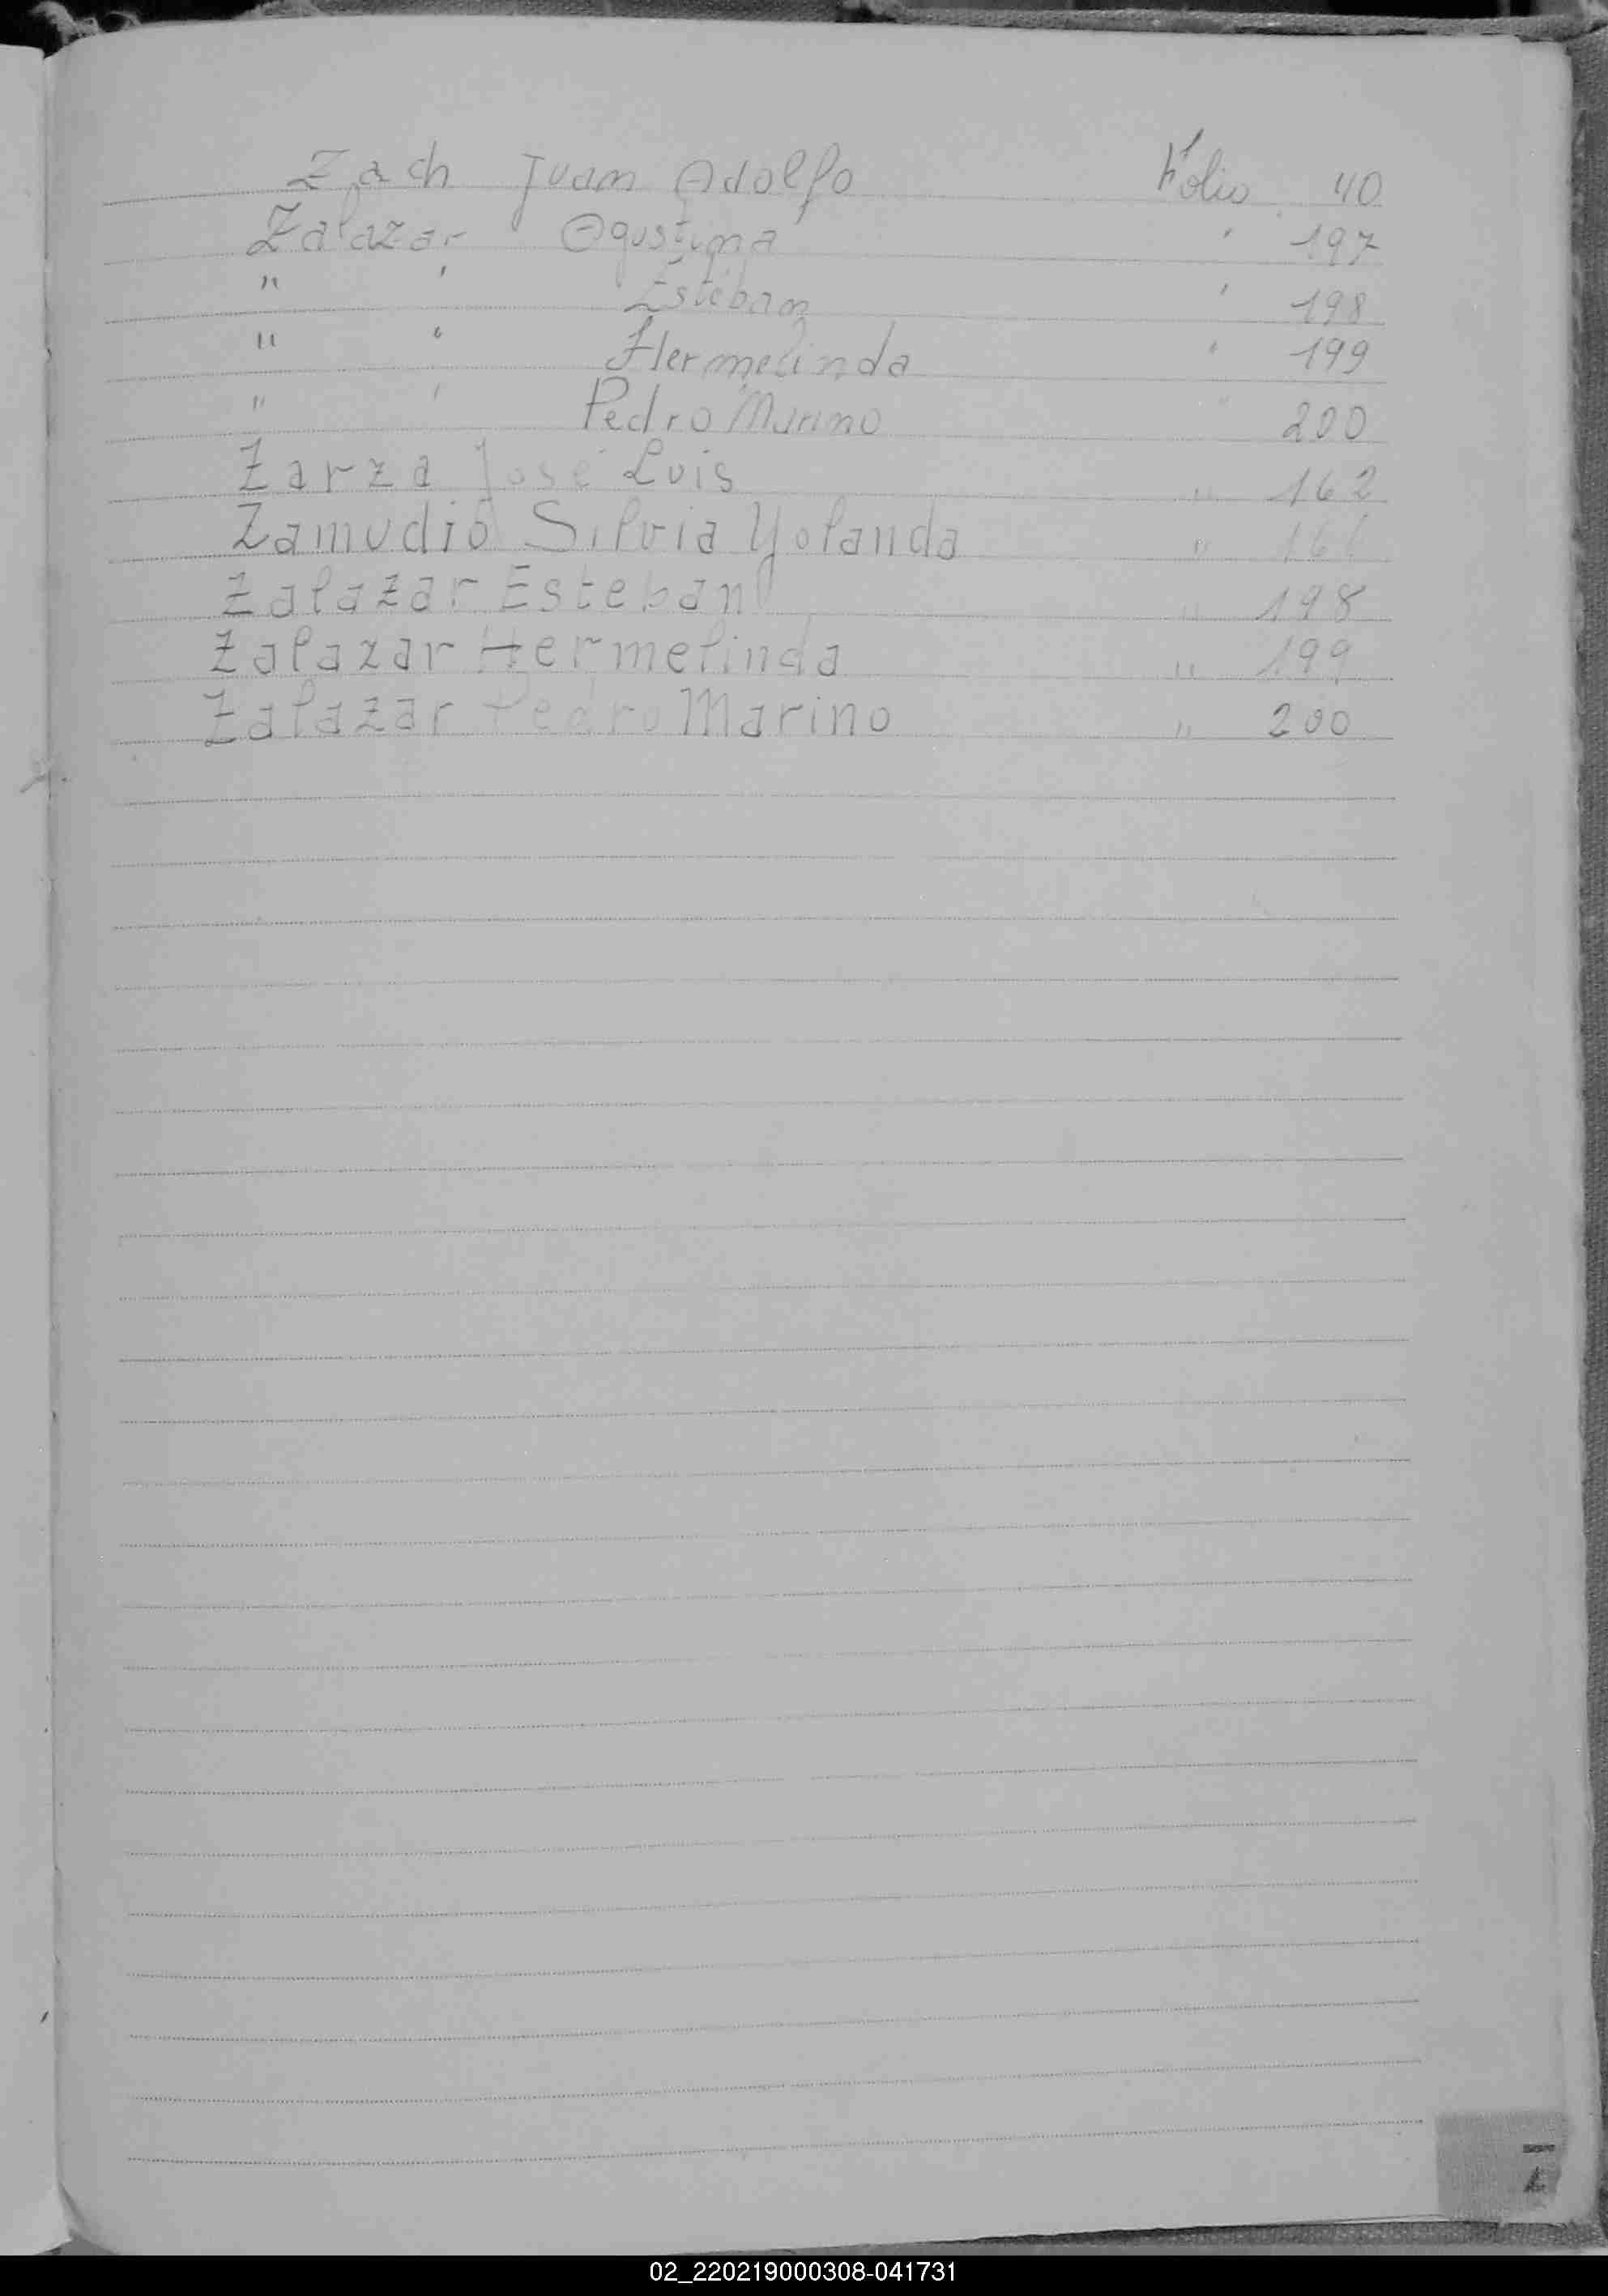 Zach Juan Adolfo Folio 40
Zalazar Agustina " 197
" " Esteban " 198
" " Hermelinda " 199
" " Pedro Marino " 200
Zarza José Luis " 162
Zamudio Silvia Yolanda " 161
Zalazar Esteban " 198
Zalazar Hermelinda " 199
Zalazar Pedro Marino " 200
02_220219000308-041731